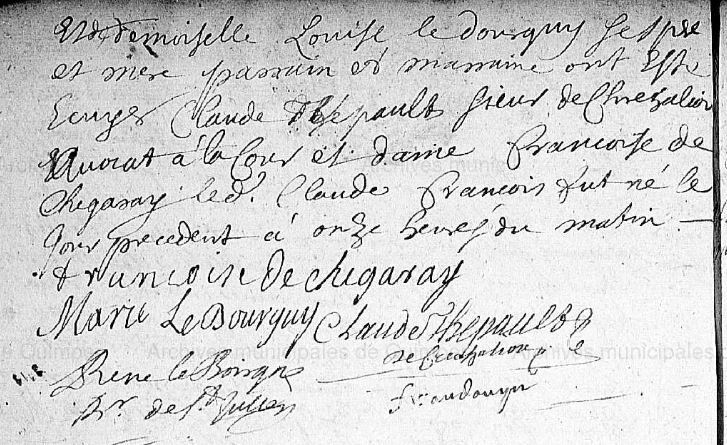 Et demoiselle Louise le dourguy Ses pre
et mere parrain et marraine ont Esté
Ecuyer Claude Thépault Sieur de Crezalion
Avocat à la Cour et dame Francoise de
Chegaray led. Claude Francois fut né le
Jour precedent à onze heures du matin
francoise de chegaray
Marie Le Bourguy Claude Thepault
de Creczalion
Rene le Bourgu
Pr. de St Julien
Archives municipales de
Archives municipales d
Quimper